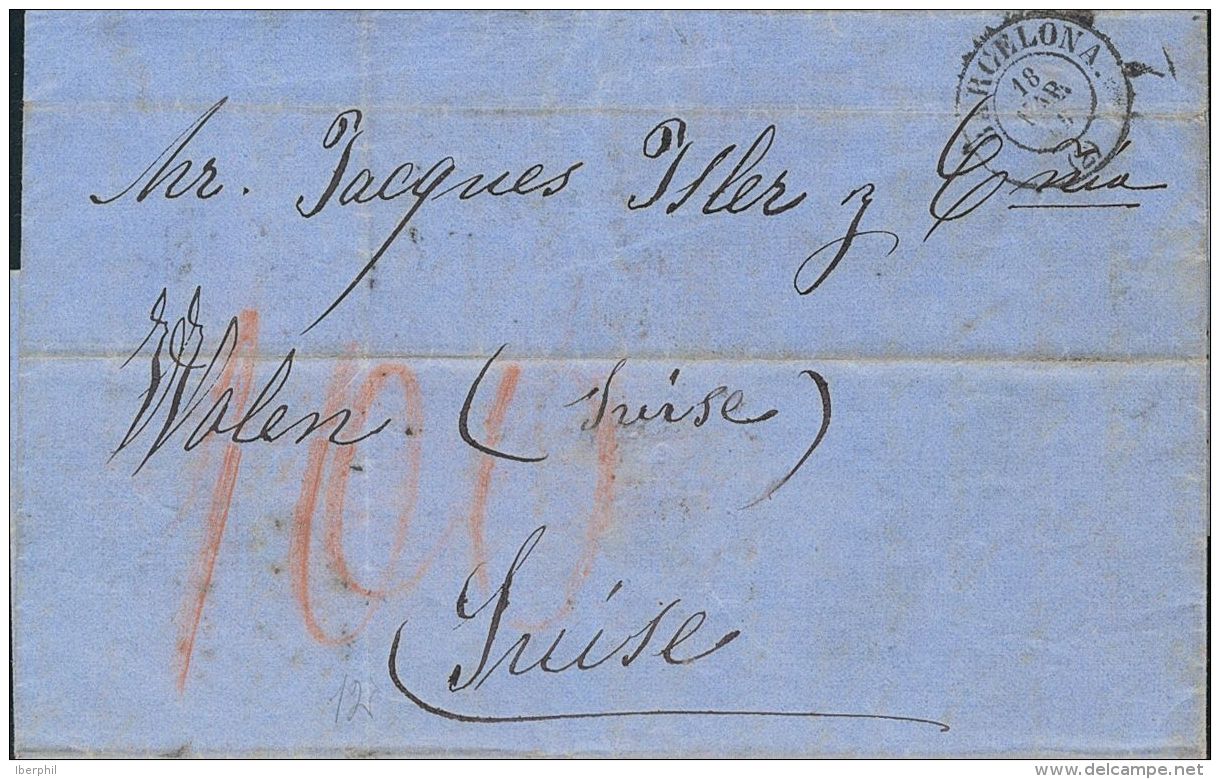 BARCELONA.
18
MAR.
Mr. Jacques Isler y Cmia
Wolen (Suise)
100
Suise
12
Iberphil
www.delcampe.net